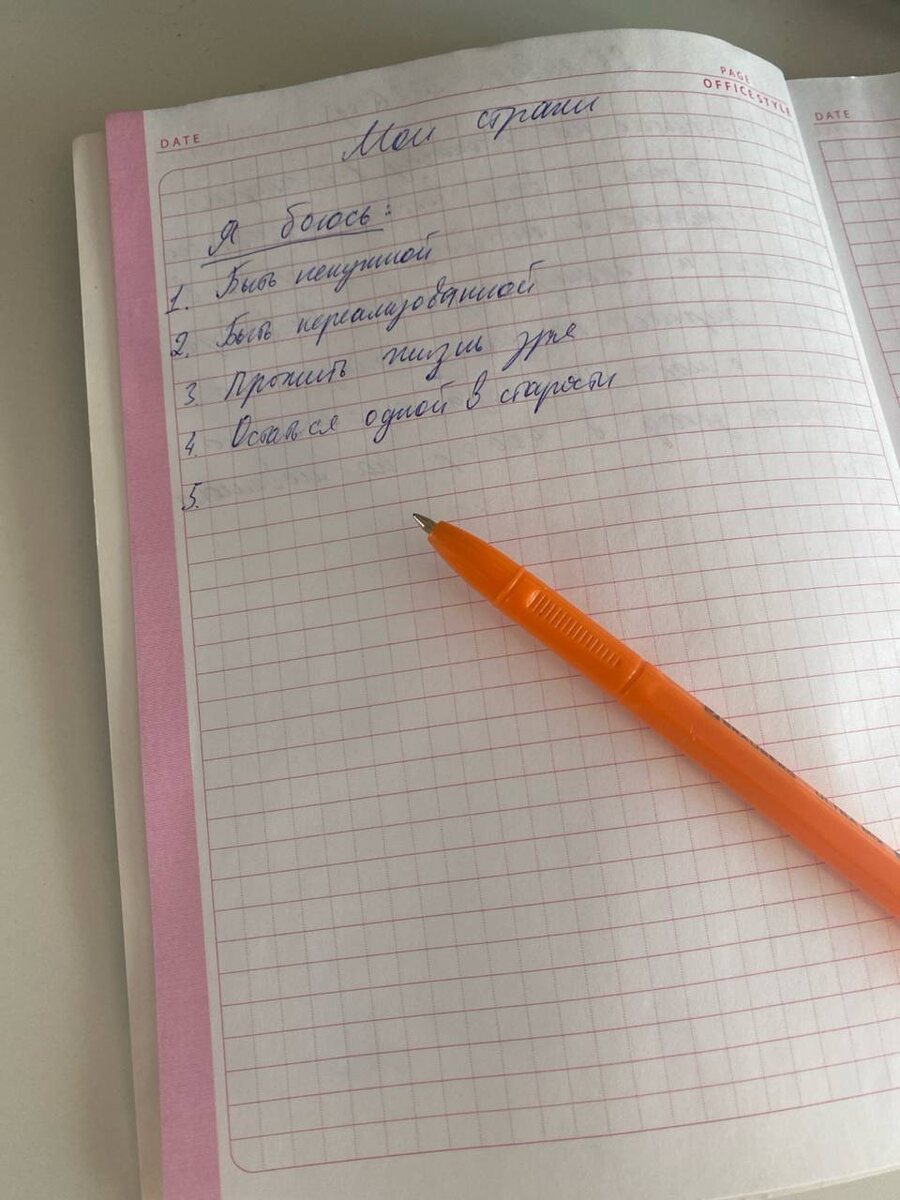 PAGE
DATE
OFFICE STYLE
DATE
Мои страхи
Я боюсь:
1. Быть ненужной
2. Быть нереализованной
3. Прожить жизнь зря
4. Остаться одной в старости
5.